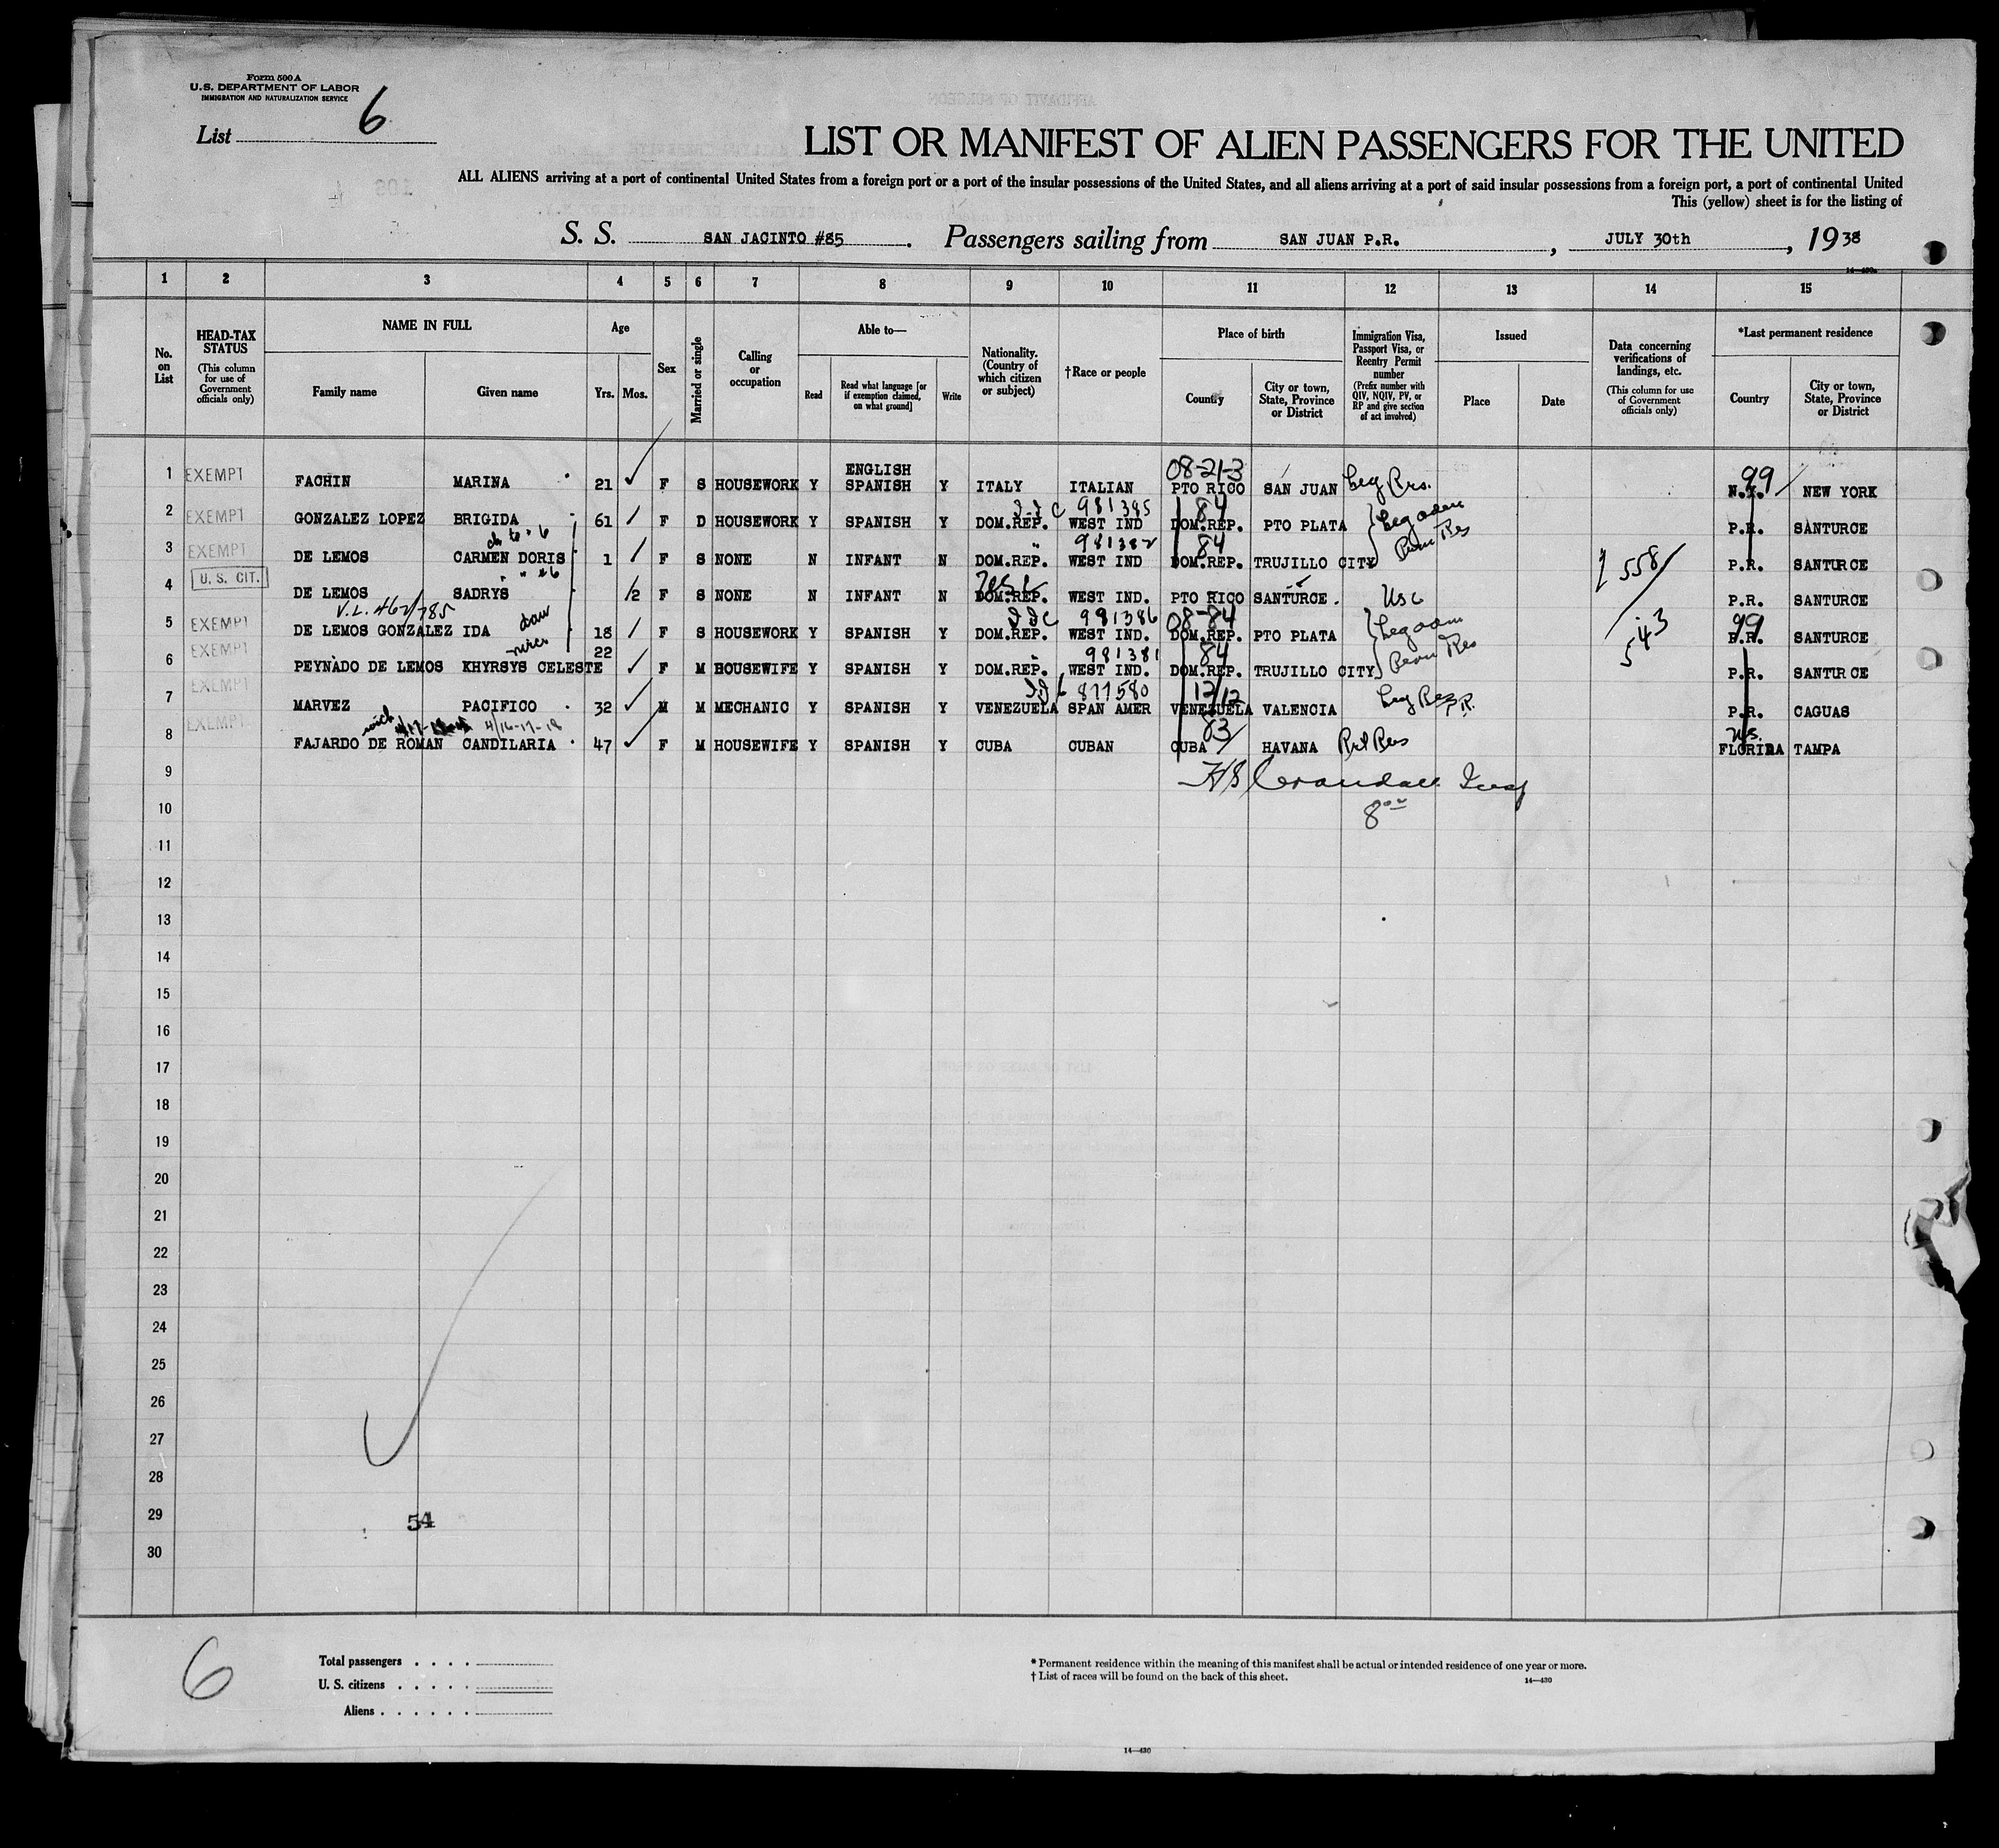 Form 500 A
U.S. DEPARTMENT OF LABOR
IMMIGRATION AND NATURALIZATION SERVICE
List 6
LIST OR MANIFEST OF ALIEN PASSENGERS FOR THE UNITED
ALL ALIENS arriving at a port of continental United States from a foreign port or a port of the insular possessions of the United States, and all aliens arriving at a port of said insular possessions from a foreign port, a port of continental United
This (yellow) sheet is for the listing of
S. S. SAN JACINTO #85. Passengers sailing from SAN JUAN P.R., JULY 30th, 1938
14-430a
1 2 3 4 5 6 7 8 9 10 11 12 13 14 15
No. on List
HEAD-TAX STATUS (This column for use of Government officials only)
NAME IN FULL Family name Given name
Age Yrs. Mos.
Sex
Married or single
Calling or occupation
Able to— Read Read what language [or if exemption claimed, on what ground] Write
Nationality. (Country of which citizen or subject)
†Race or people
Place of birth Country City or town, State, Province or District
Immigration Visa, Passport Visa, or Reentry Permit number (Prefix number with QIV, NQIV, PV, or RP and give section of act involved)
Issued Place Date
Data concerning verifications of landings, etc. (This column for use of Government officials only)
*Last permanent residence Country City or town, State, Province or District
ENGLISH 08-21-3 99
1 EXEMPT FACHIN MARINA 21 F S HOUSEWORK Y SPANISH Y ITALY ITALIAN PTO RICO SAN JUAN Leg Res. N.Y. NEW YORK
981385 84
2 EXEMPT GONZALEZ LOPEZ BRIGIDA 61 F D HOUSEWORK Y SPANISH Y DOM.REP. WEST IND DOM.REP. PTO PLATA Leg adm P.R. SANTURCE
981382 84
3 EXEMPT DE LEMOS CARMEN DORIS 1 F S NONE N INFANT N DOM.REP. WEST IND DOM.REP. TRUJILLO CITY Perm Res 558 P.R. SANTURCE
4 U. S. CIT. DE LEMOS SADRYS 1/2 F S NONE N INFANT N DOM.REP. WEST IND. PTO RICO SANTURCE. USC P.R. SANTURCE
V.L. 462/785 981386 08-84 99
5 EXEMPT DE LEMOS GONZALEZ IDA 18 F S HOUSEWORK Y SPANISH Y DOM.REP. WEST IND. DOM.REP. PTO PLATA Leg adm 543 P.R. SANTURCE
981381 84
6 EXEMPT PEYNADO DE LEMOS KHYRSYS CELESTE 22 F M HOUSEWIFE Y SPANISH Y DOM.REP. WEST IND. DOM.REP. TRUJILLO CITY Perm Res P.R. SANTURCE
877580 12/12
7 EXEMPT MARVEZ PACIFICO 32 M M MECHANIC Y SPANISH Y VENEZUELA SPAN AMER VENEZUELA VALENCIA Leg Res P.R. P.R. CAGUAS
4/16-17-18 83 U.S.
8 EXEMPT FAJARDO DE ROMAN CANDILARIA 47 F M HOUSEWIFE Y SPANISH Y CUBA CUBAN CUBA HAVANA Ret Res FLORIDA TAMPA
9 Crandall Insp
10 8
11
12
13
14
15
16
17
18
19
20
21
22
23
24
25
26
27
28
29 54
30
6
Total passengers
U. S. citizens
Aliens
* Permanent residence within the meaning of this manifest shall be actual or intended residence of one year or more.
† List of races will be found on the back of this sheet.
14—430
14—430